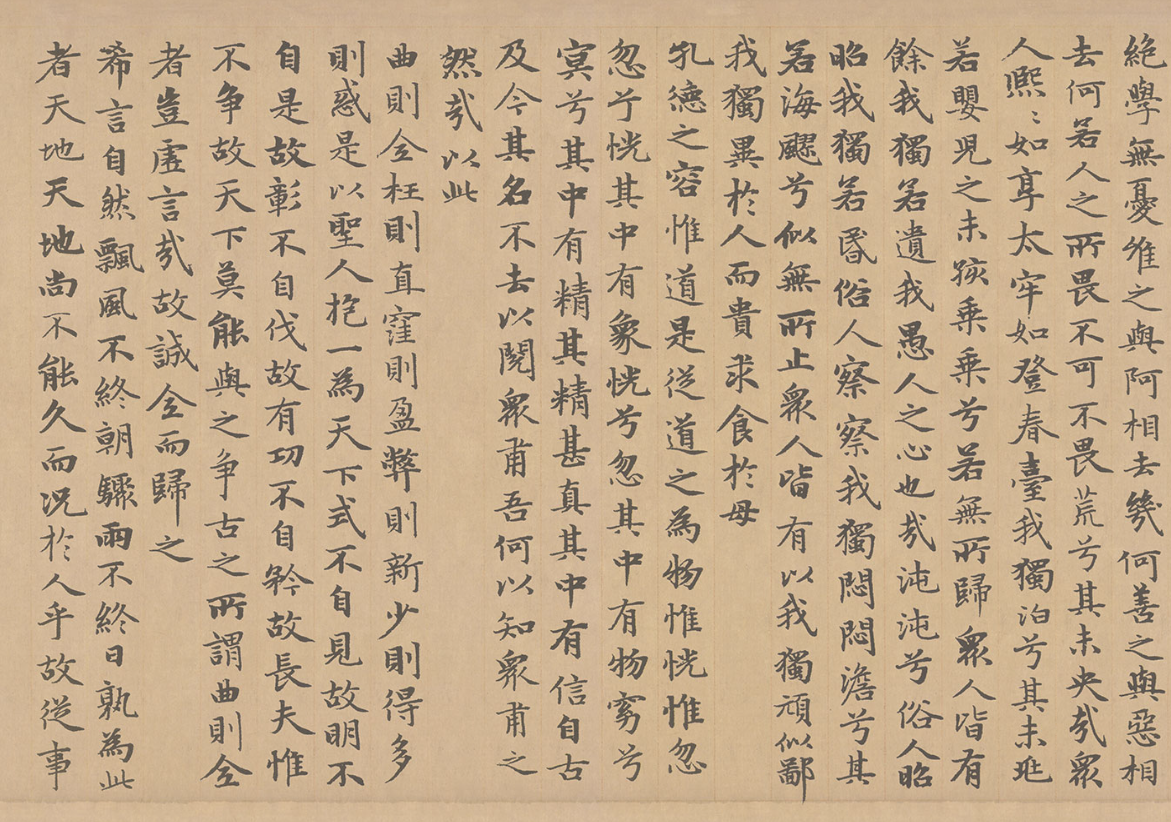 絕學無憂維之與阿相去幾何善之與惡相
去何若人之所畏不可不畏荒兮其未央哉衆
人熙〻如享太牢如登春臺我獨泊兮其未兆
若嬰兒之未孩乗乗兮若無所歸衆人皆有
餘我獨若遺我愚人之心也哉沌沌兮俗人昭
昭我獨若昏俗人察察我獨悶悶澹兮其
若海飂兮似無所止衆人皆有以我獨頑似鄙
我獨異於人而貴求食於母
孔德之容惟道是從道之為物惟恍惟忽
忽兮恍其中有象恍兮忽其中有物窈兮
冥兮其中有精其精甚真其中有信自古
及今其名不去以閱衆甫吾何以知衆甫之
然哉以此
曲則全枉則直窪則盈弊則新少則得多
則惑是以聖人抱一為天下式不自見故明不
自是故彰不自伐故有功不自矜故長夫惟
不争故天下莫能與之争古之所謂曲則全
者豈虛言哉故誠全而歸之
希言自然飄風不終朝驟雨不終日孰為此
者天地天地尚不能久而況於人乎故從事